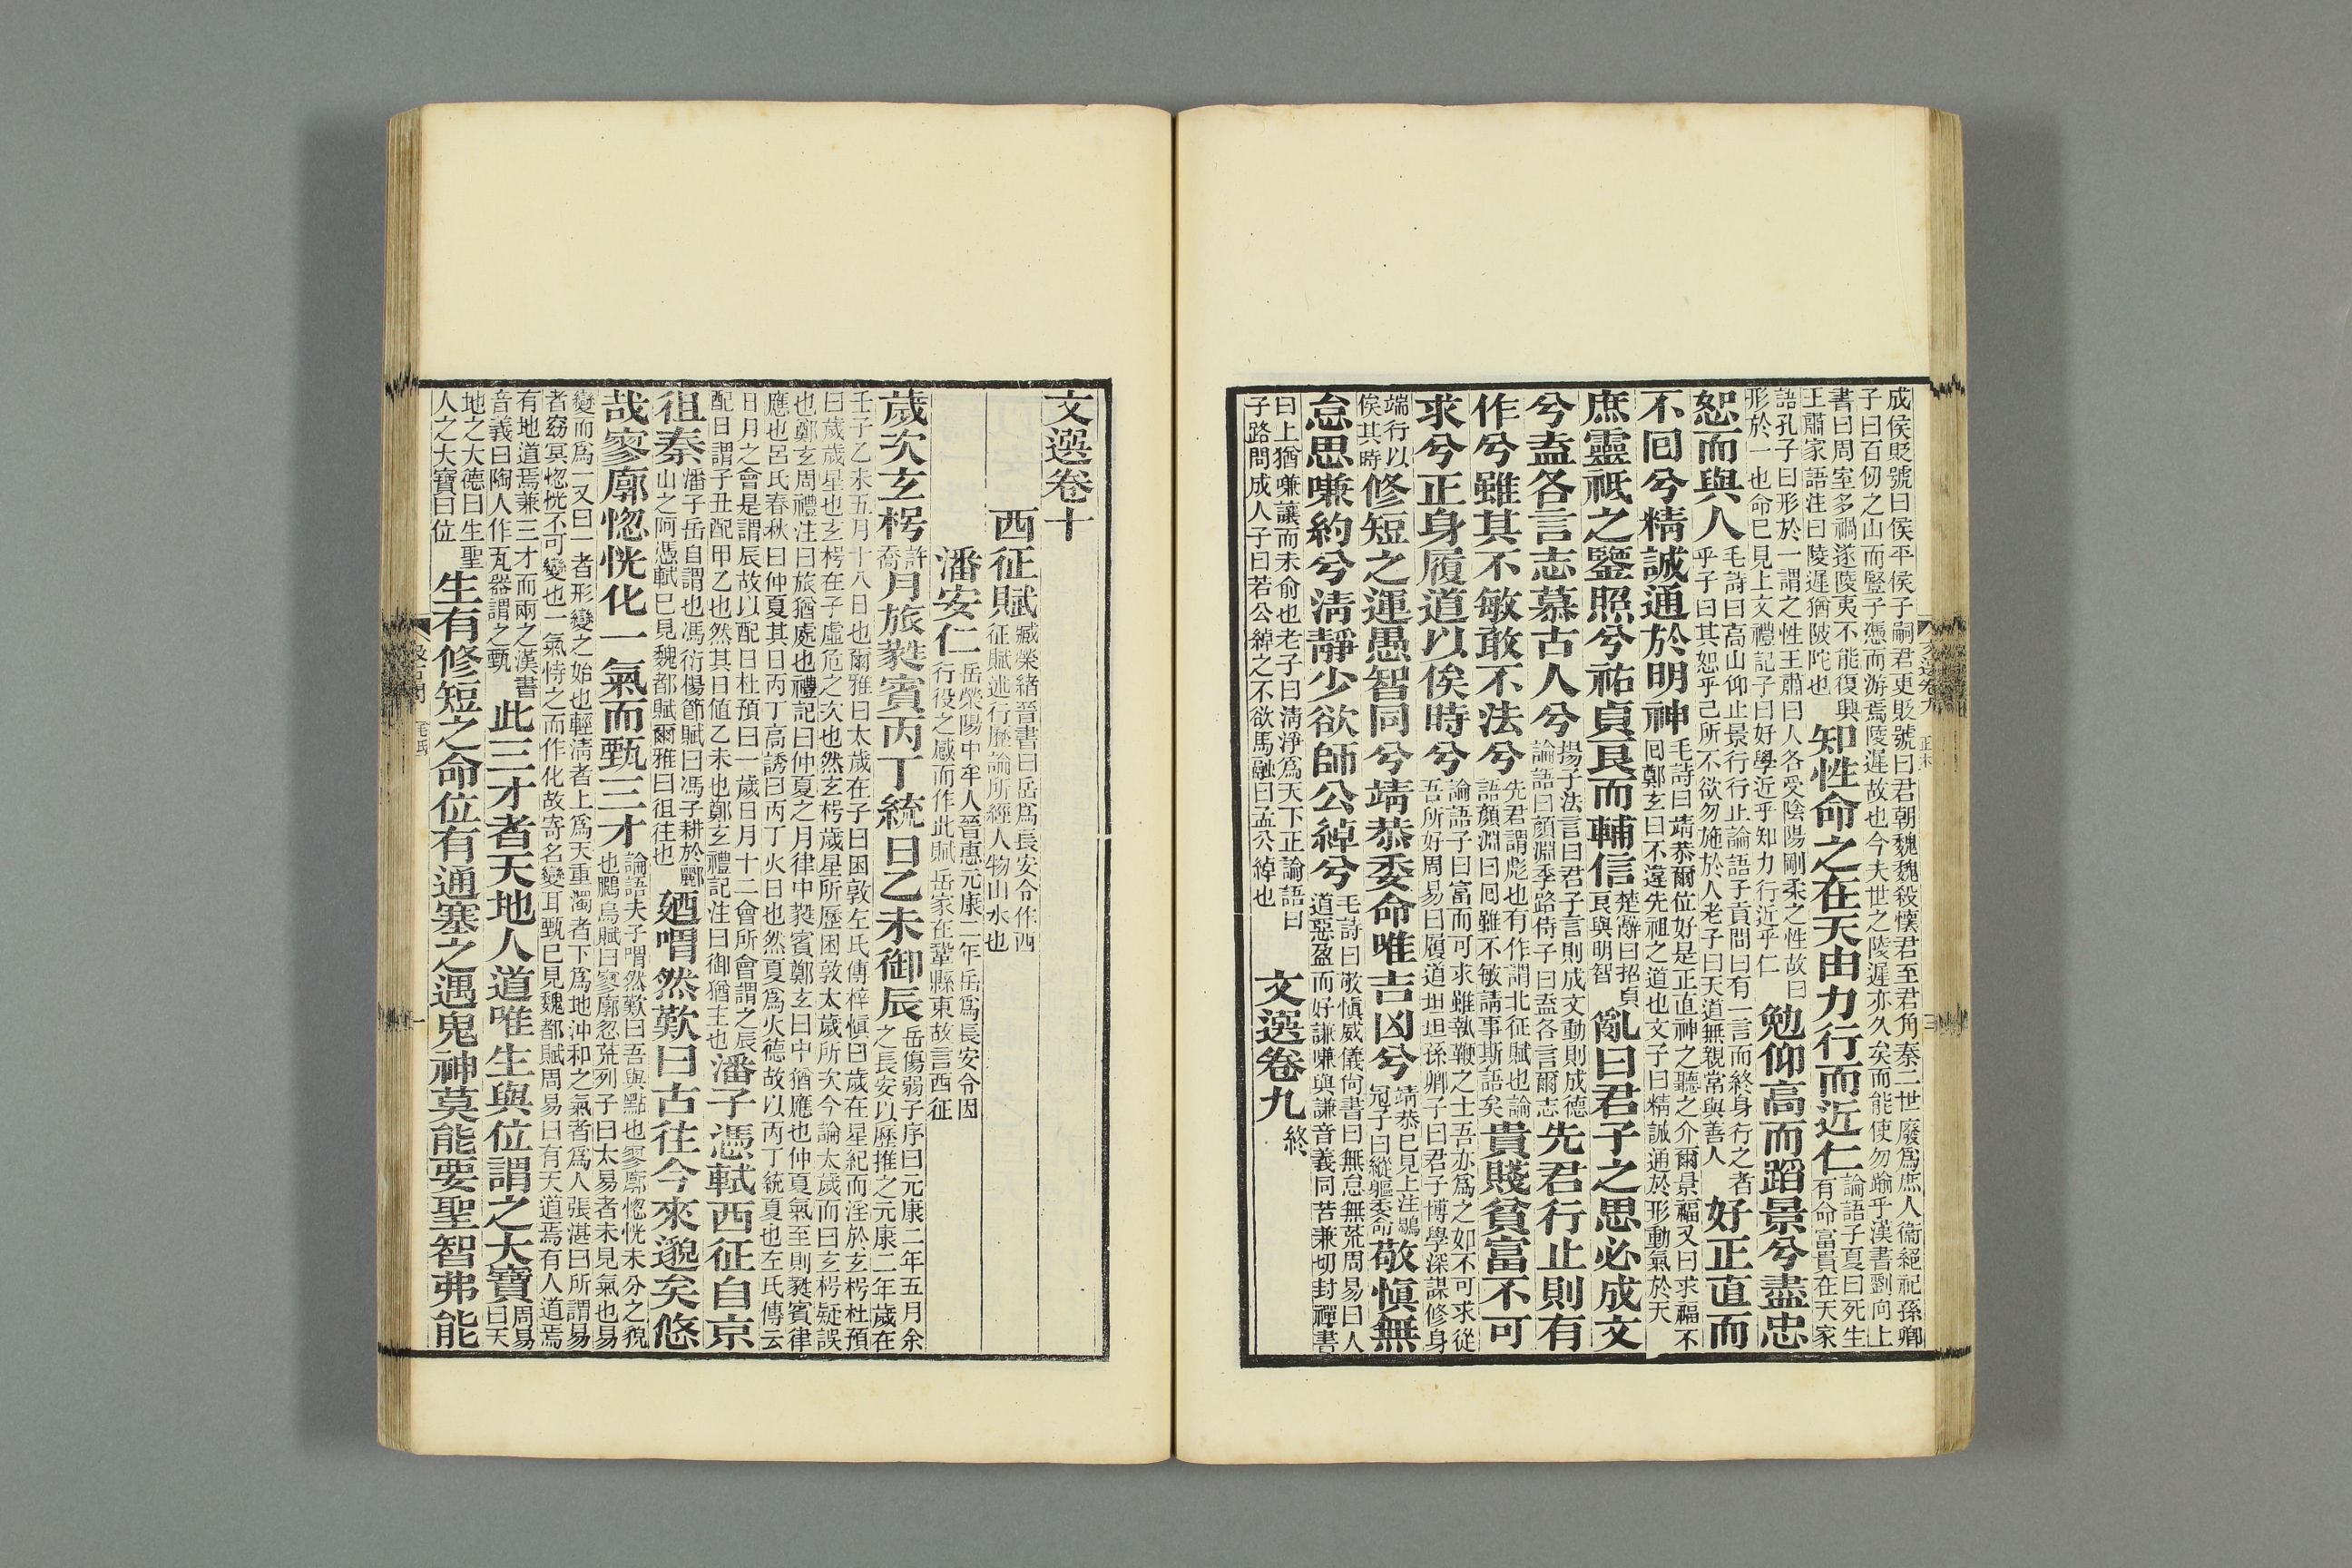 成侯貶號曰侯平侯子嗣君更貶號曰君朝魏魏殺懷君至君角秦二世廢爲庶人衞絕祀孫卿
子曰百仞之山而豎子馮而游焉陵遲故也今夫世之陵遲亦久矣而能使勿踰乎漢書劉向上
書曰周室多禍遂陵夷不能復興
王肅家語注曰陵遲猶陂陀也
知性命之在天由力行而近仁
論語子夏曰死生
有命富貴在天家
語孔子曰形於一謂之性王肅曰人各受陰陽剛柔之性故曰
形於一也命巳見上文禮記子曰好學近乎知力行近乎仁
勉仰高而蹈景兮盡忠
恕而與人
毛詩曰高山仰止景行行止論語子貢問曰有一言而終身行之者
乎子曰其恕乎己所不欲勿施於人老子曰天道無親常與善人
好正直而
不回兮精誠通於明神
毛詩曰靖恭爾位好是正直神之聽之介爾景福又曰求福不
回鄭玄曰不違先祖之道也文子曰精誠通於形動氣於天
庶靈祗之鑒照兮祐貞良而輔信
楚辭曰招貞
良與明智
亂曰君子之思必成文
兮盍各言志慕古人兮
揚子法言曰君子言則成文動則成德
論語曰顏淵季路侍子曰盍各言爾志
先君行止則有
作兮雖其不敏敢不法兮
先君謂彪也有作謂北征賦也論
語顏淵曰回雖不敏請事斯語矣
貴賤貧富不可
求兮正身履道以俟時兮
論語子曰富而可求雖執鞭之士吾亦爲之如不可求從
吾所好周易曰履道坦坦孫卿子曰君子博學深謀修身
端行以
俟其時
修短之運愚智同兮靖恭委命唯吉凶兮
靖恭巳見上注鶡
冠子曰縱軀委命
敬愼無
怠思嗛約兮淸靜少欲師公綽兮
毛詩曰敬愼威儀尙書曰無怠無荒周易曰人
道惡盈而好謙嗛與謙音義同苦兼切封禪書
曰上猶嗛讓而未俞也老子曰淸淨爲天下正論語曰
子路問成人子曰若公綽之不欲馬融曰孟公綽也
文選卷九 終
文選卷十
西征賦
臧榮緖晉書曰岳爲長安令作西
征賦述行歷論所經人物山水也
潘安仁
岳滎陽中牟人晉惠元康二年岳爲長安令因
行役之感而作此賦岳家在鞏縣東故言西征
歲次玄枵
許
喬
月旅蕤賓丙丁統日乙未御辰
岳傷弱子序曰元康二年五月余
之長安以歷推之元康二年歲在
壬子乙未五月十八日也爾雅曰太歲在子曰困敦左氏傳梓愼曰歲在星紀而淫於玄枵杜預
曰歲歲星也玄枵在子虛危之次也然玄枵歲星所歷困敦太歲所次今論太歲而曰玄枵疑誤
也鄭玄周禮注曰旅猶處也禮記曰仲夏之月律中蕤賓鄭玄曰中猶應也仲夏氣至則蕤賓律
應也呂氏春秋曰仲夏其日丙丁高誘曰丙丁火日也然夏爲火德故以丙丁統夏也左氏傳云
日月之會是謂辰故以配日杜預曰一歲日月十二會所會謂之辰
配日謂子丑配甲乙也然其日值乙未也鄭玄禮記注曰御猶主也
潘子憑軾西征自京
徂秦
潘子岳自謂也馮衍楊節賦曰馮子耕於酈
山之阿憑軾巳見魏都賦爾雅曰徂往也
廼喟然歎曰古往今來邈矣悠
哉寥廓惚恍化一氣而甄三才
論語夫子喟然歎曰吾與點也寥廓惚恍未分之貌
也鵩鳥賦曰寥廓忽荒列子曰太易者未見氣也易
變而爲一又曰一者形變之始也輕淸者上爲天重濁者下爲地沖和之氣者爲人張湛曰所謂易
者窈冥惚恍不可變也一氣恃之而作化故寄名變耳甄巳見魏都賦周易曰有天道焉有人道焉
有地道焉兼三才而兩之漢書
音義曰陶人作瓦器謂之甄
此三才者天地人道唯生與位謂之大寶
周易
曰天
地之大德曰生聖
人之大寶曰位
生有修短之命位有通塞之遇鬼神莫能要聖智弗能